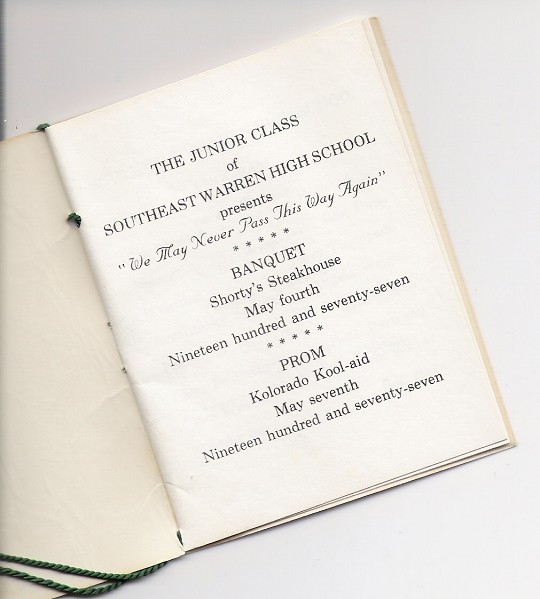 THE JUNIOR CLASS
of
SOUTHEAST WARREN HIGH SCHOOL
presents
"We May Never Pass This Way Again"
* * * * *
BANQUET
Shorty's Steakhouse
May fourth
Nineteen hundred and seventy-seven
* * * * *
PROM
Kolorado Kool-aid
May seventh
Nineteen hundred and seventy-seven